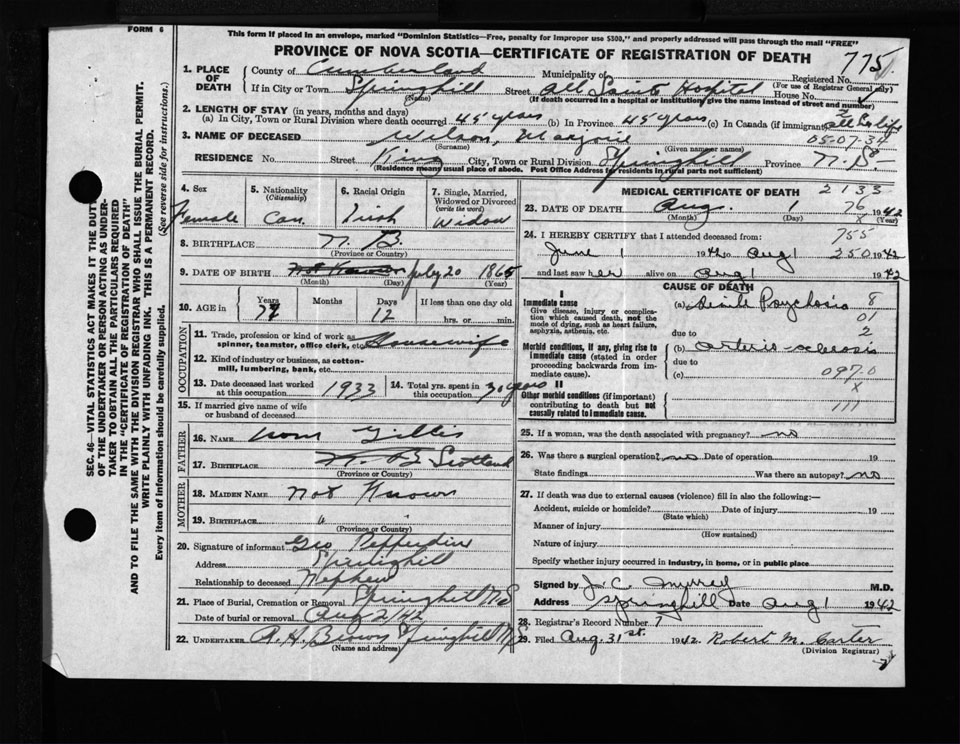 FORM 6
This form if placed in an envelope, marked "Dominion Statistics—Free, penalty for improper use $300," and properly addressed will pass through the mail "FREE"
PROVINCE OF NOVA SCOTIA—CERTIFICATE OF REGISTRATION OF DEATH
775
SEC. 46—VITAL STATISTICS ACT MAKES IT THE DUTY
OF THE UNDERTAKER OR PERSON ACTING AS UNDER-
TAKER TO OBTAIN ALL THE PARTICULARS REQUIRED
IN THE "CERTIFICATE OF REGISTRATION OF DEATH"
AND TO FILE THE SAME WITH THE DIVISION REGISTRAR WHO SHALL ISSUE THE BURIAL PERMIT.
WRITE PLAINLY WITH UNFADING INK. THIS IS A PERMANENT RECORD.
Every item of information should be carefully supplied. (See reverse side for instructions.)
1. PLACE OF DEATH
County of Cumberland Municipality of Registered No.
(For use of Registrar General only)
If in City or Town Springhill Street All Saints Hospital House No.
(Name) (If death occurred in a hospital or institution, give the name instead of street and number)
2. LENGTH OF STAY (in years, months and days)
(a) In City, Town or Rural Division where death occurred 45 years (b) In Province 45 years (c) In Canada (if immigrant) all life
3. NAME OF DECEASED Wilson, Marjorie 05-07-34
(Surname) (Given name or names)
RESIDENCE No. Street King City, Town or Rural Division Springhill Province N.S.
(Residence means usual place of abode. Post Office Address for residents in rural parts not sufficient)
4. Sex
Female
5. Nationality
(Citizenship)
Can.
6. Racial Origin
Irish
7. Single, Married, Widowed or Divorced
(write the word)
Widow
8. BIRTHPLACE N. B.
(Province or Country)
9. DATE OF BIRTH Not Known July 20 1865
(Month) (Day) (Year)
10. AGE in Years 77 Months Days 12 If less than one day old
hrs. or min.
OCCUPATION
11. Trade, profession or kind of work as spinner, teamster, office clerk, etc. Housewife
12. Kind of industry or business, as cotton-mill, lumbering, bank, etc.
13. Date deceased last worked at this occupation 1933
14. Total yrs. spent in this occupation 30 years
15. If married give name of wife or husband of deceased
FATHER
16. NAME Gillis
17. BIRTHPLACE N B Scotland
(Province or Country)
MOTHER
18. MAIDEN NAME Not Known
19. BIRTHPLACE " "
(Province or Country)
20. Signature of informant Geo
Address Springhill
Relationship to deceased Nephew
21. Place of Burial, Cremation or Removal Springhill N S
Date of burial or removal Aug 2/42
22. UNDERTAKER A. H. Brown Springhill N S
(Name and address)
MEDICAL CERTIFICATE OF DEATH
2133
23. DATE OF DEATH Aug. 1 76 1942
(Month) (Day) x (Year)
24. I HEREBY CERTIFY that I attended deceased from: 755
June 1 1942 to Aug 1 250 1942
and last saw her alive on Aug 1 1942
CAUSE OF DEATH
I
Immediate cause
Give disease, injury or complication which caused death, not the mode of dying, such as heart failure, asphyxia, asthenia, etc.
(a) Senile Psychosis 8
01
due to 2
Morbid conditions, if any, giving rise to immediate cause (stated in order proceeding backwards from immediate cause).
(b) Arterio-sclerosis
due to
(c) 097.0
x
II
Other morbid conditions (if important) contributing to death but not causally related to immediate cause.
111
25. If a woman, was the death associated with pregnancy? no
26. Was there a surgical operation? no Date of operation 19
State findings Was there an autopsy? no
27. If death was due to external causes (violence) fill in also the following:—
Accident, suicide or homicide? Date of injury 19
(State which)
Manner of injury
(How sustained)
Nature of injury
Specify whether injury occurred in industry, in home, or in public place
Signed by J. C. Murray M.D.
Address Springhill Date Aug 1 1942
28. Registrar's Record Number 7
29. Filed Aug. 31st. 1942. Robert M. Carter
(Division Registrar)